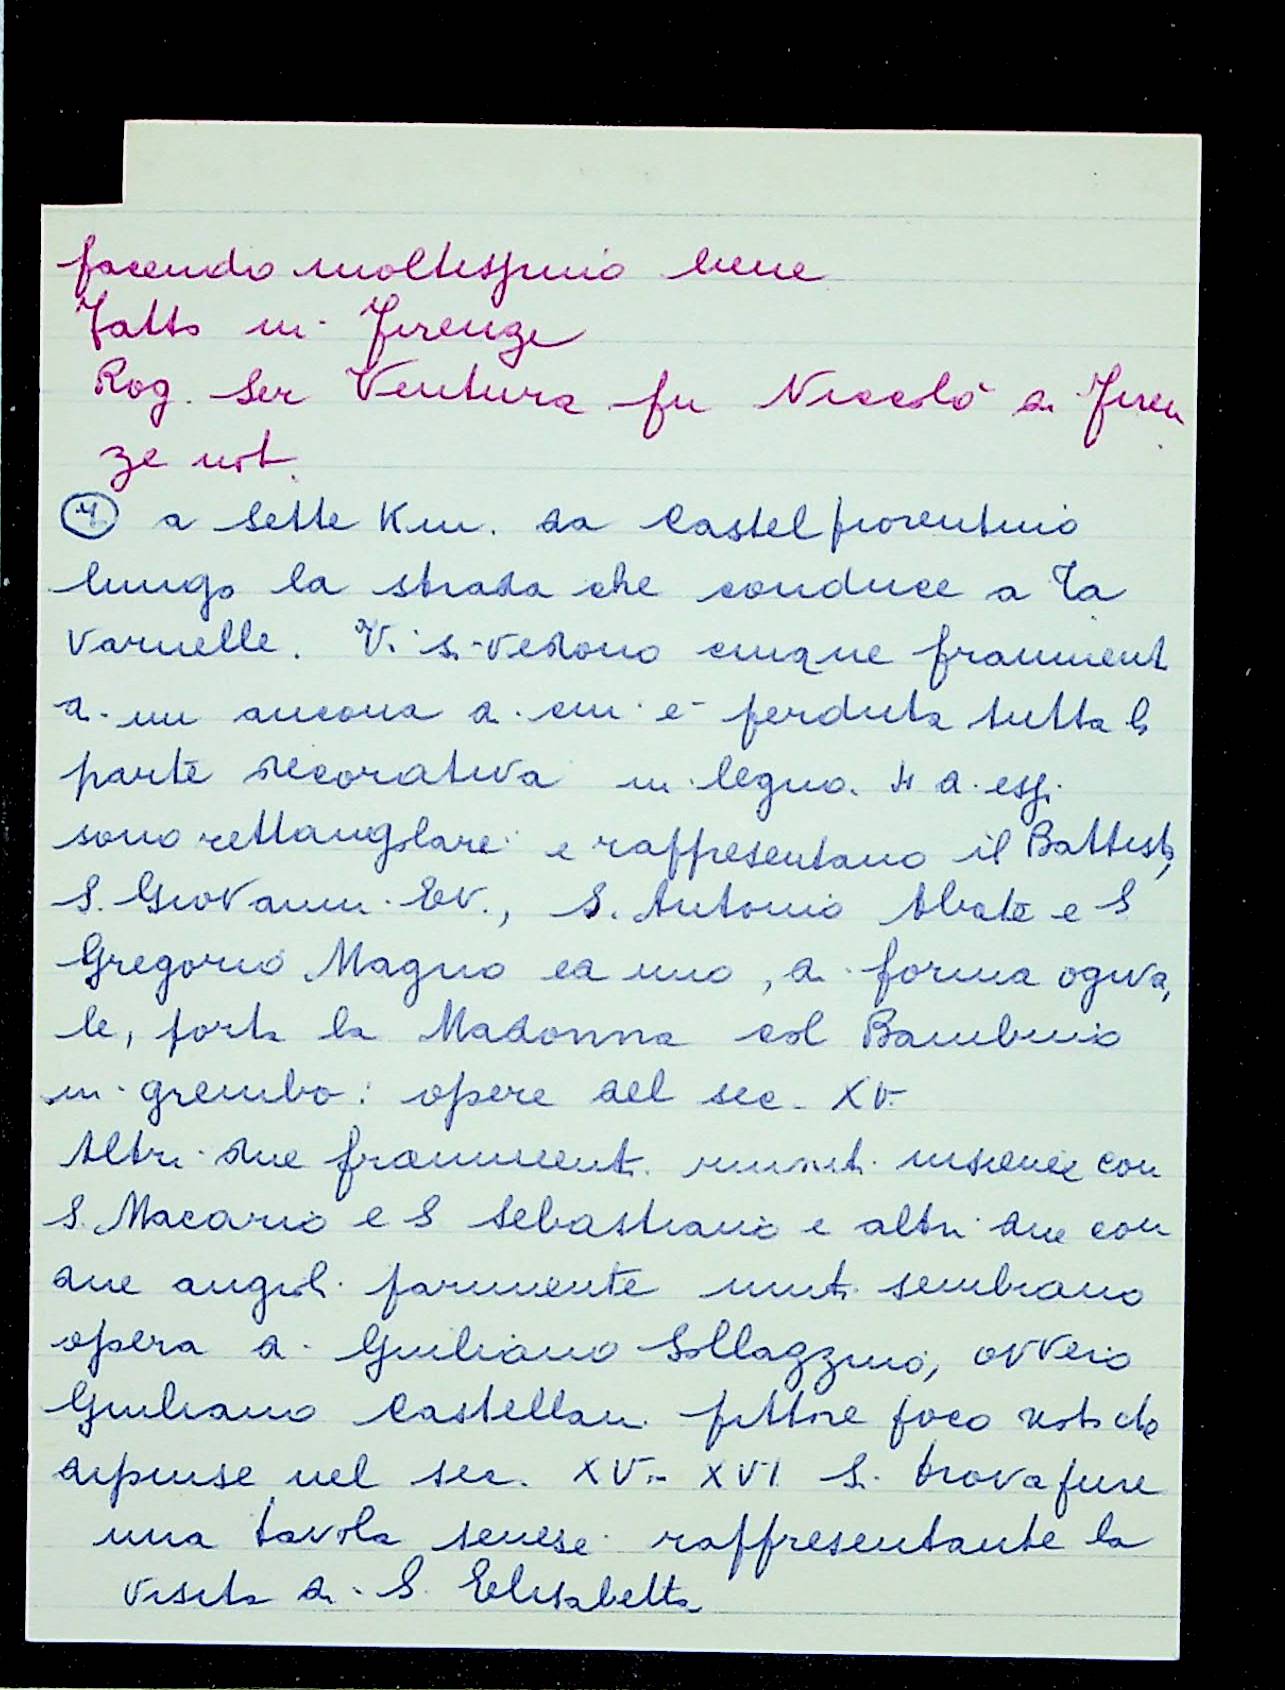 facendo moltissimo bene
Fatto in Firenze
Rog. Ser Ventura fu Niccolò di Firen
ze not.
a sette Km. da Castelfiorentino
lungo la strada che conduce a Ta
varnelle. Vi si vedono cinque framment
di un ancona di cui è perduta tutta la
parte decorativa in legno. 4 di essi
sono rettangolare e rappresentano il Battista,
S. Giovanni Ev., S. Antonio Abate e S
Gregorio Magno ed uno, di forma ogiva,
le, porta la Madonna col Bambino
in grembo: opere del sec. XV.
Altri due frammenti riuniti insieme con
S. Macario e S Sebastiano e altri due con
due angioli parimente uniti sembrano
opera di Giuliano Sollazzino, ovvero
Giuliano Castellani pittore poco noto che
dipinse nel sec. XV - XVI Si trova pure
una tavola senese rappresentante la
visita di S. Elisabetta